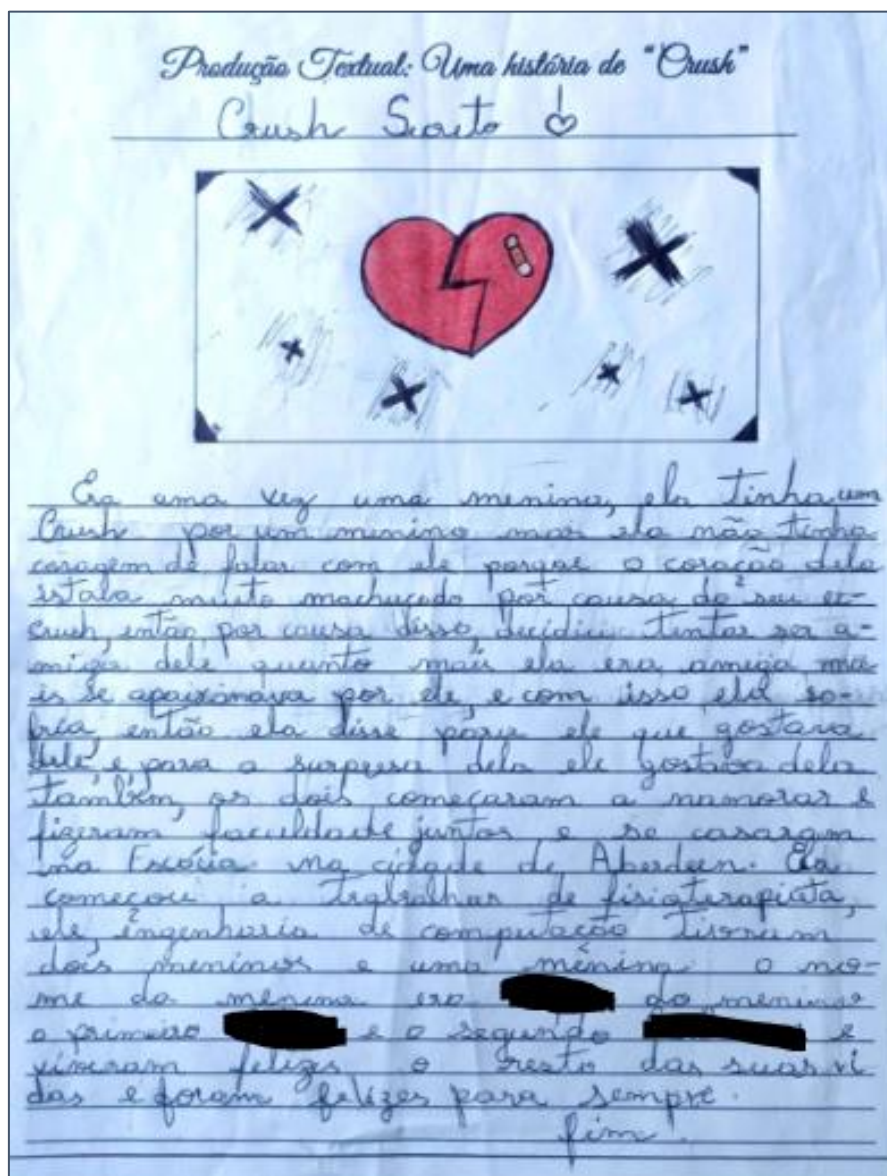 Produção Textual: Uma história de "Crush"
Crush Secreto
Era uma vez uma menina, ela tinha um
Crush por um menino mas ela não tinha
coragem de falar com ele porque o coração dela
estava muito machucado por causa do seu ex-
crush, então por causa disso, decidiu tentar ser a-
miga dele quanto mais ela era amiga ma
is se apaixonava por ele, e com isso ela so-
fria, então ela disse para ele que gostava
dele e para a surpresa dela ele gostava dela
também, os dois começaram a namorar e
fizeram faculdade juntos e se casaram
na Escócia na cidade de Aberdeen. Ela
começou a trabalhar de fisioterapiata,
ele, engenharia de computação tiveram
dois meninos e uma menina o no-
me da menina era do menino
o primeiro e o segundo e
viveram felizes o resto das suas vi
das e foram felizes para sempre.
fim.